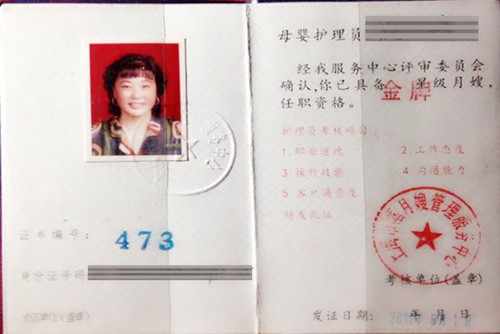 证书编号:
473
身份证号码
发证单位(盖章)
母婴护理员
经我服务中心评审委员会
确认,你已具备 星级月嫂,
金牌
任职资格。
护理员考核项目:
1.职业道德 2.工作态度
3.操作技能 4.沟通能力
5.客户满意度
特发此证
月嫂管理服务中心
考核单位(盖章)
发证日期: 年 月 日